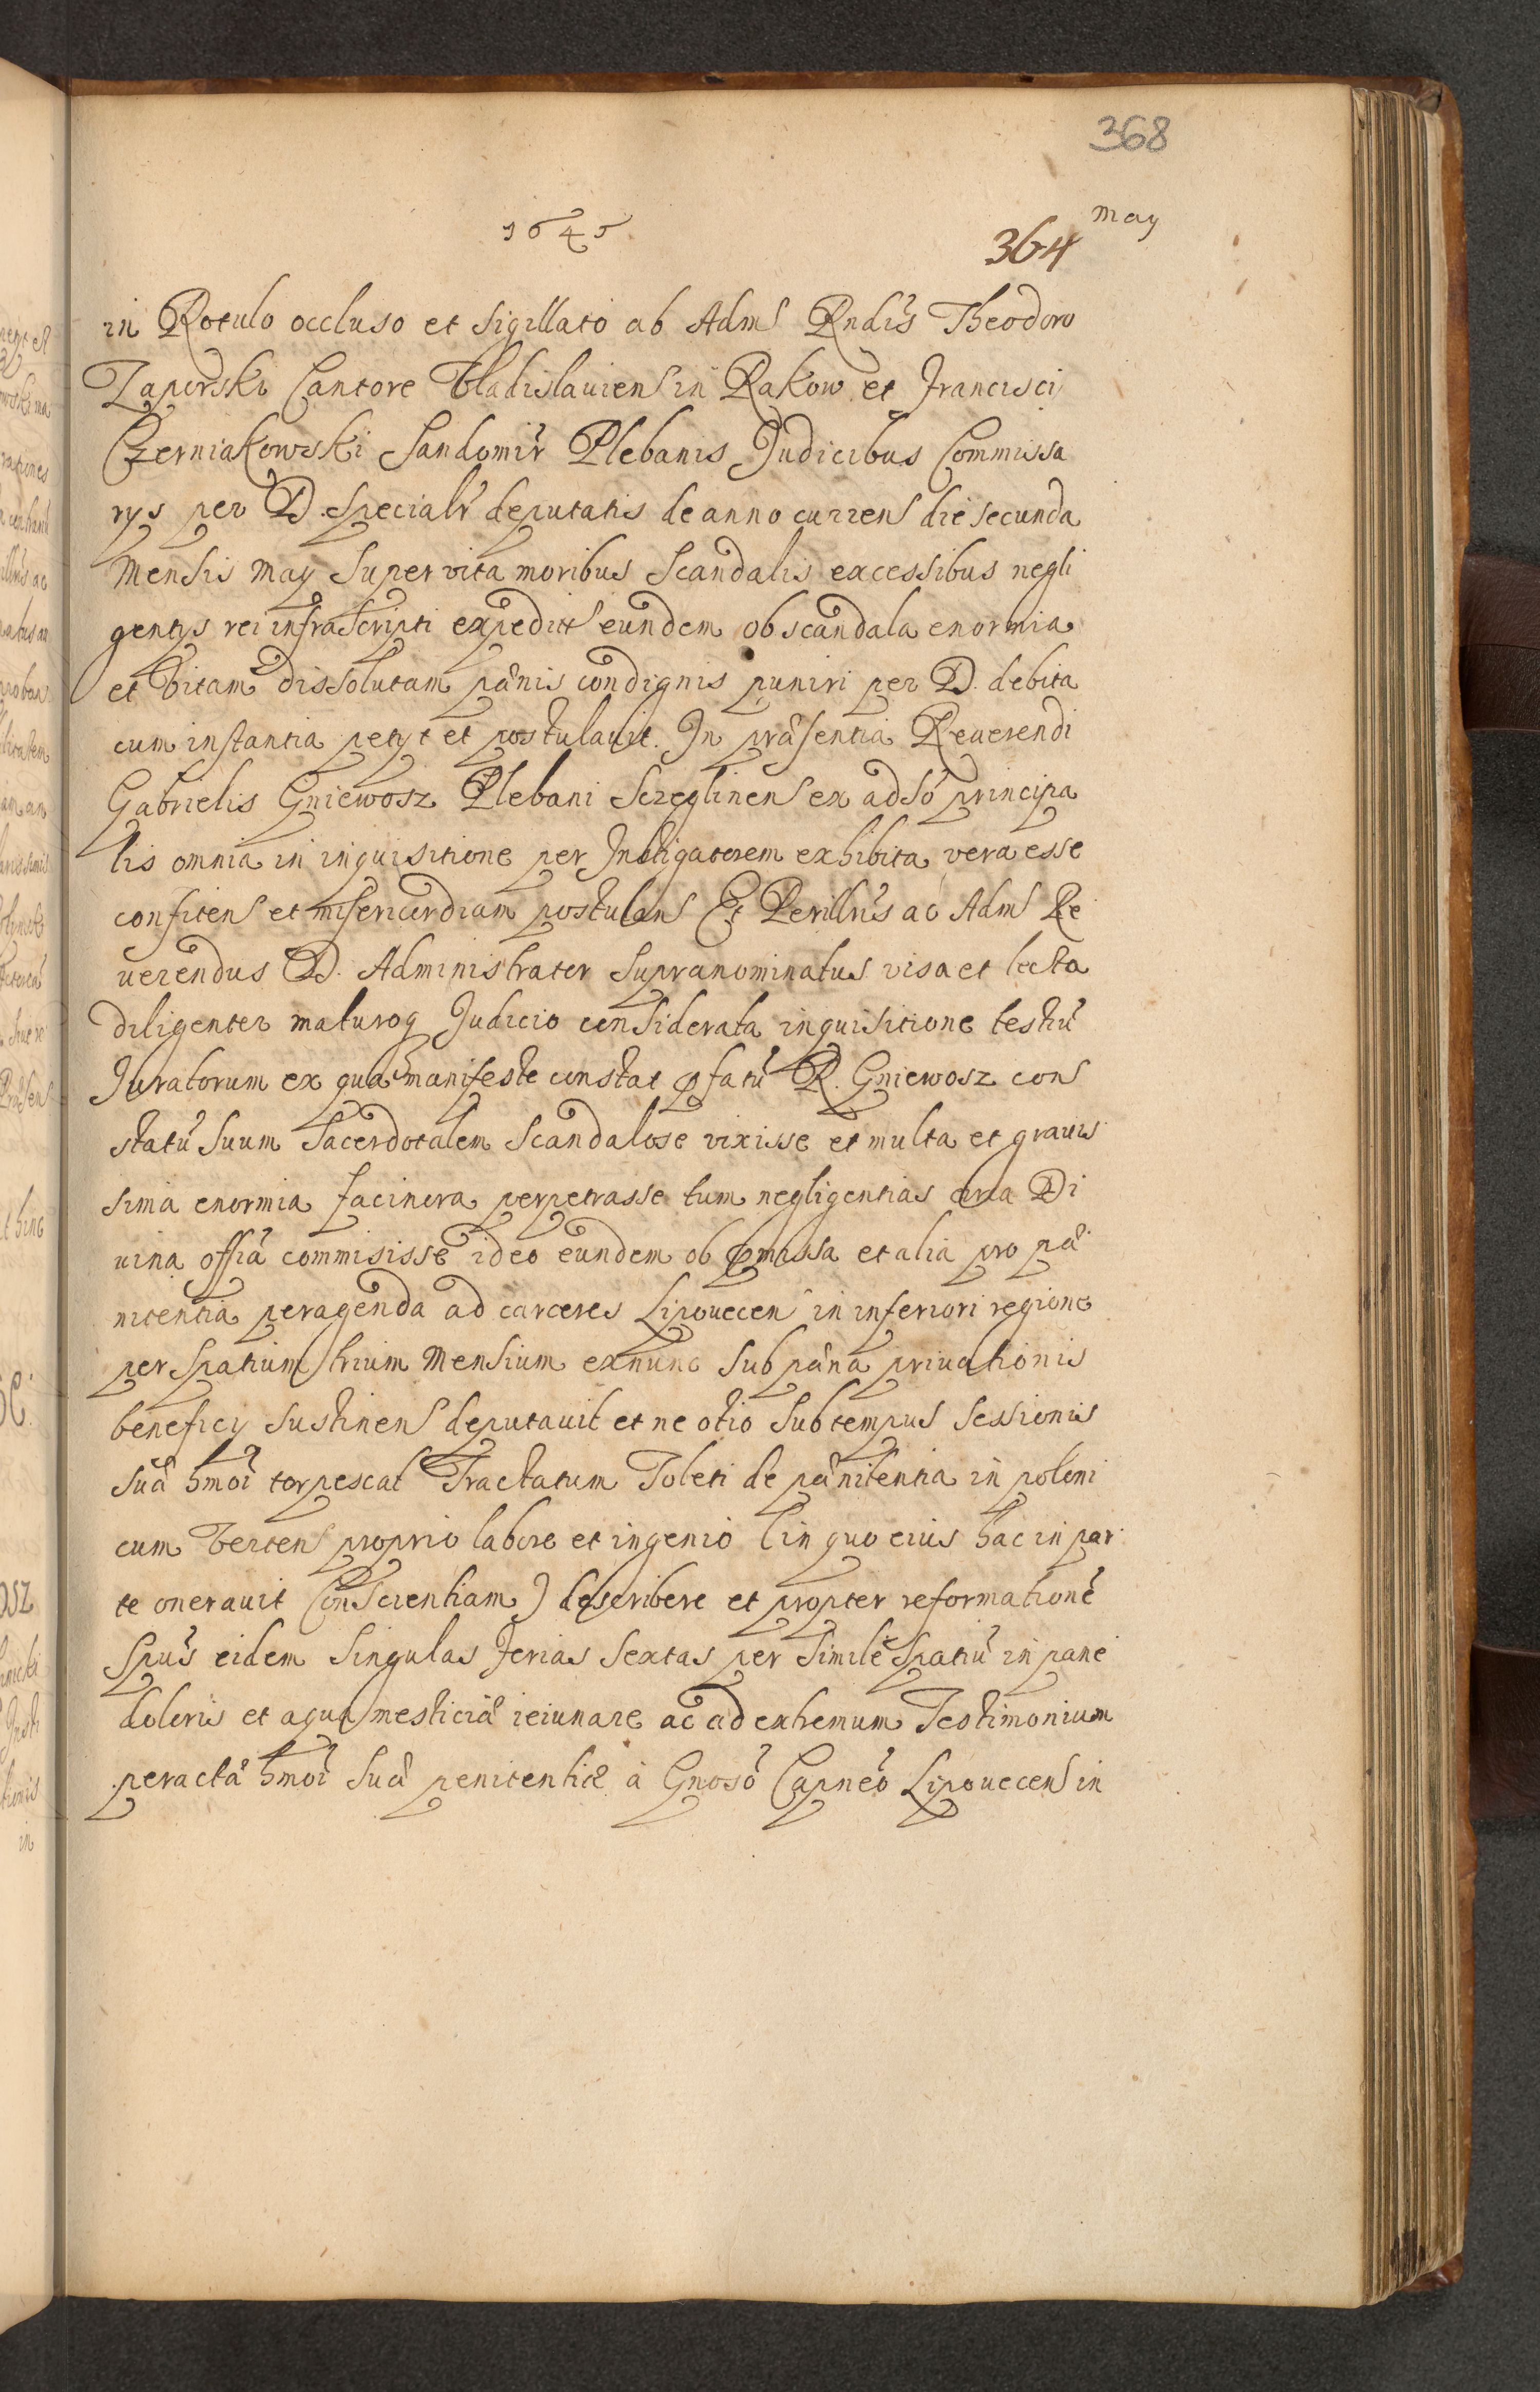 368
1645
364 May
in Rotulo occluso et sigillato ab Adm Rndis Theodoro
Zaporski Cantore Vladislauien in Rakow et Francisci
Czerniakowski Sandomir Plebanis Judicibus Commissa
rys per D. Specialr deputatis de anno curren die secunda
Mensis May Super vita moribus Scandalis excessibus negli
gentys rei infrascripti expedit eundem ob scandala enormia
et Vitam dissolutam pænis condignis puniri per D. debita
cum instantia petyt et postulauit. In præsentia Reuerendi
Gabrielis Gniewosz Plebani Screglinen ex adso principa
lis omnia in inquisitione per Instigatorem exhibita vera esse
confiten et misericordiam postulan Et Perillris ac Adm Re
uerendus D. Administrator Supranominatus visa et lecta
diligenter maturoq Judicio considerata inquisitione testiu
Juratorum ex qua manifeste constat pfatu R. Gniewosz con
statu Suum Sacerdotalem Scandalose vixisse et multa et grauis
sima enormia facinora perpetrasse tum negligentias circa Di
uina offia commisisse ideo eundem ob pmissa et alia pro pæ
nitentia peragenda ad carceres Lipouecen in inferiori regione
per Spatium trium Mensium exnunc Sub pæna priuationis
beneficy Sustinen deputauit et ne otio Sub tempus Sessionis
Suæ hmoi torpescat Tractatum Toleti de pænitentia in poloni
cum Verten proprio labore et ingenio (in quo eius hac in par
te onerauit Conscientiam) describere et propter reformatione
Spus eidem Singulas Ferias Sextas per Simile Spatiu in pane
doloris et aqua mesticiæ ieiunare ac ad extremum Testimonium
peractæ hmoi Suæ penitentiæ à Gnoso Capneo Lipouecen in